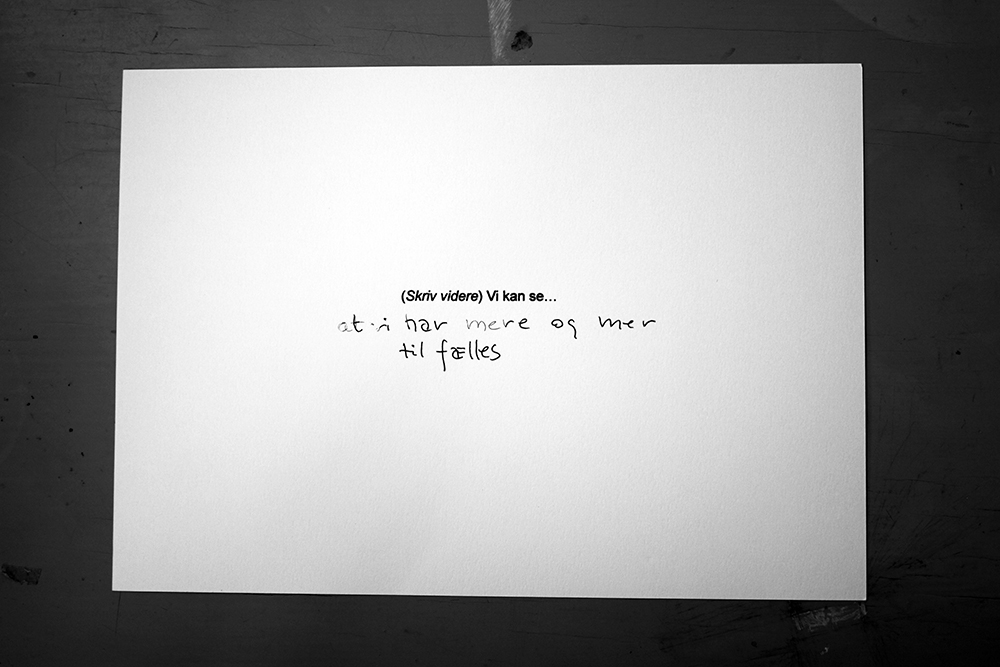 (Skriv videre) Vi kan se...
at vi har mere og mer
til fælles